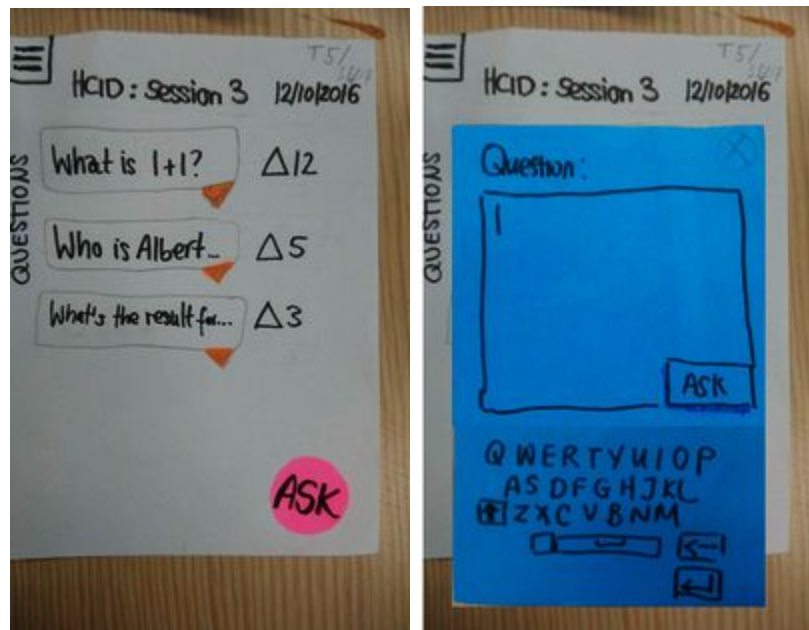 T5/
HCID: Session 3 12/10/2016
QUESTIONS
What is 1+1? △12
Who is Albert... △5
What's the result for... △3
ASK
T5/
HCID: Session 3 12/10/2016
QUESTIONS
Question:
ASK
QWERTYUIOP
ASDFGHJKL
ZXCVBNM